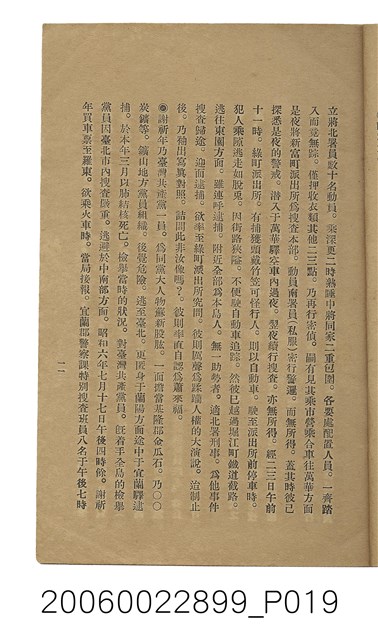 立將北署員數十名動員。乘深更二時熟睡中將同家二重包圍。各要處配置人員。一齊踏
入而竟無踪。僅押收衣類其他二三點。乃再行密偵。關有見其乘市營乘合車往萬華方面
是夜將新富町派出所為搜查本部。動員南署員(私服)密行警邏。而無所得。蓋其時彼已
探悉是夜的警戒。潛入于萬華驛空車內過夜。翌夜續行搜查。亦無所得。經二三日午前
十一時。綠町派出所。有捕獲頭戴竹笠可怪行人。則以自動車。駛至派出所前停車時。
犯人乘隙逃走如脫兔。因街路狹隘。不便駛自動車追踪。然彼已越過堀江町鐵道截路。
逃往東園方面。雖連呼逮捕。附近全部為本島人。無一助勢者。適北署刑事。為他事件
搜查歸途。迎面逮捕。欲率至綠町派出所究問。彼則厲聲為蹂躪人權的大演說。迨制止
後。乃袖出寫真對照。詰問此非汝像嗎?。彼則率直自認為蕭來福。
◎謝祈年乃臺灣共產黨一員。為同黨大人物蘇新股肱。一面擔當基隆郡金瓜石。乃○○
炭鑛等。鑛山地方黨員組織。後覺危險。逃至臺北。更匿身于蘭陽方面途中于宜蘭驛逮
捕。於本年三月以肺結核死亡。檢舉當時的狀況。對臺灣共產黨員。既着手全島的檢舉
黨員因臺北市內搜查嚴重。逃避於中南部方面。昭和六年七月十七日午後四時餘。謝祈
年買車票至羅東。欲乘火車時。當局接報。宜蘭郡警察課特別搜查班員八名于午後七時
一一
20060022899_P019